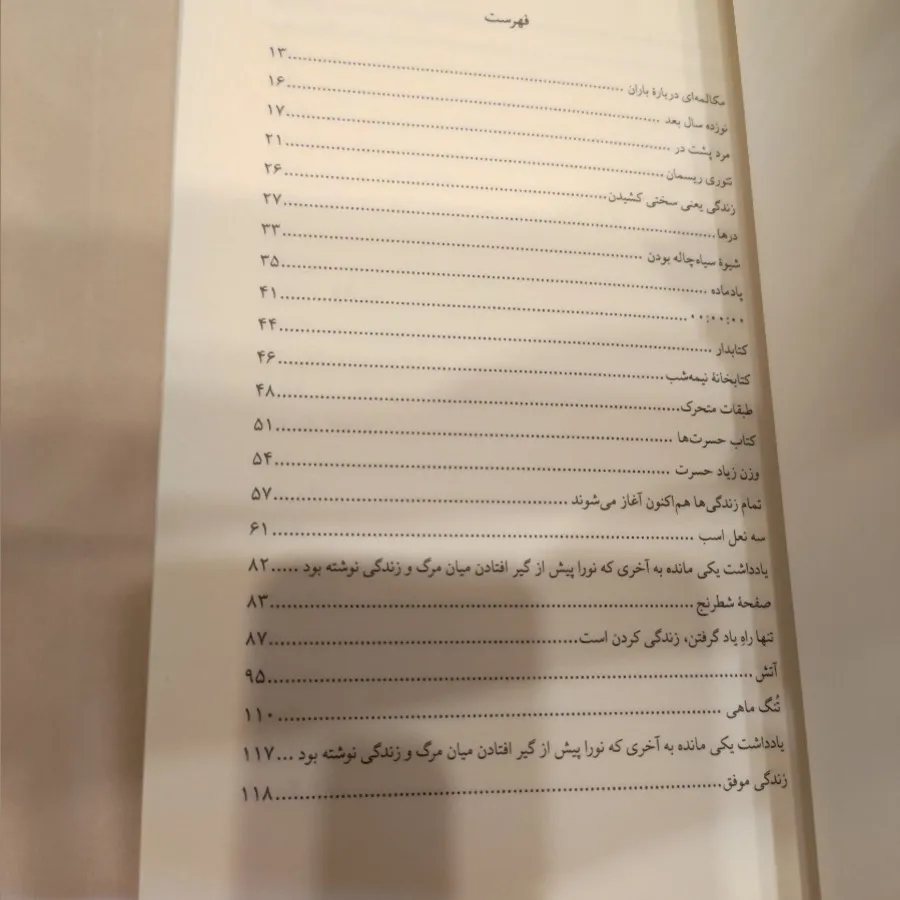 فهرست
مکالمه‌ای دربارهٔ باران ........ ۱۳
نوزده سال بعد ........ ۱۶
مرد پشت در ........ ۱۷
تئوری ریسمان ........ ۲۱
زندگی یعنی سختی کشیدن ........ ۲۶
درها ........ ۲۷
شیوهٔ سیاه‌چاله بودن ........ ۳۳
پادماده ........ ۳۵
۰۰:۰۰:۰۰ ........ ۴۱
کتابدار ........ ۴۴
کتابخانهٔ نیمه‌شب ........ ۴۶
طبقات متحرک ........ ۴۸
کتاب حسرت‌ها ........ ۵۱
وزن زیاد حسرت ........ ۵۴
تمام زندگی‌ها هم‌اکنون آغاز می‌شوند ........ ۵۷
سه نعل اسب ........ ۶۱
یادداشت یکی مانده به آخری که نورا پیش از گیر افتادن میان مرگ و زندگی نوشته بود ..... ۸۲
صفحهٔ شطرنج ........ ۸۳
تنها راهِ یاد گرفتن، زندگی کردن است ........ ۸۷
آتش ........ ۹۵
تُنگ ماهی ........ ۱۱۰
یادداشت یکی مانده به آخری که نورا پیش از گیر افتادن میان مرگ و زندگی نوشته بود ... ۱۱۷
زندگی موفق ........ ۱۱۸